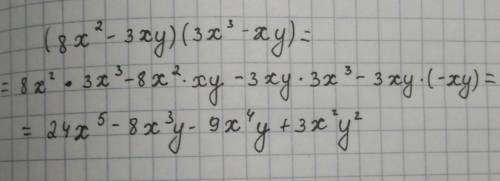 (8x² - 3xy)(3x³ - xy) =
= 8x² · 3x³ - 8x² · xy - 3xy · 3x³ - 3xy · (-xy) =
= 24x⁵ - 8x³y - 9x⁴y + 3x²y²